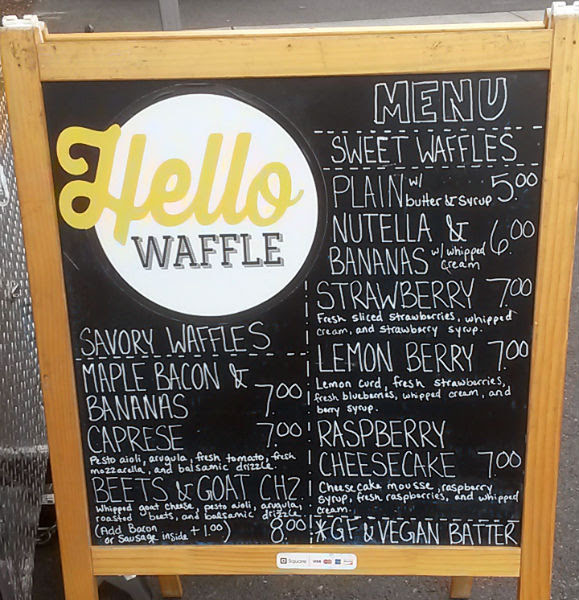 Hello
WAFFLE
SAVORY WAFFLES
MAPLE BACON &
BANANAS 7.00
CAPRESE 7.00
Pesto aioli, arugula, fresh tomato, fresh
mozzarella, and balsamic drizzle.
BEETS & GOAT CHZ
Whipped goat cheese, pesto aioli, arugula,
roasted beets, and balsamic drizzle
(Add Bacon
or Sausage inside +1.00) 8.00
MENU
SWEET WAFFLES
PLAIN w/
butter & syrup 5.00
NUTELLA &
BANANAS w/ whipped
cream 6.00
STRAWBERRY 7.00
Fresh sliced strawberries, whipped
cream, and strawberry syrup.
LEMON BERRY 7.00
Lemon curd, fresh strawberries,
fresh blueberries, whipped cream, and
berry syrup.
RASPBERRY
CHEESECAKE 7.00
Cheesecake mousse, raspberry
syrup, fresh raspberries, and whipped
cream.
*GF & VEGAN BATTER
Square VISA